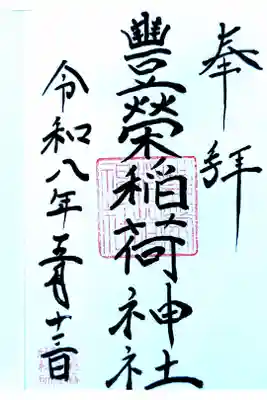 奉拝
豊榮稲荷神社
令和八年五月十二日